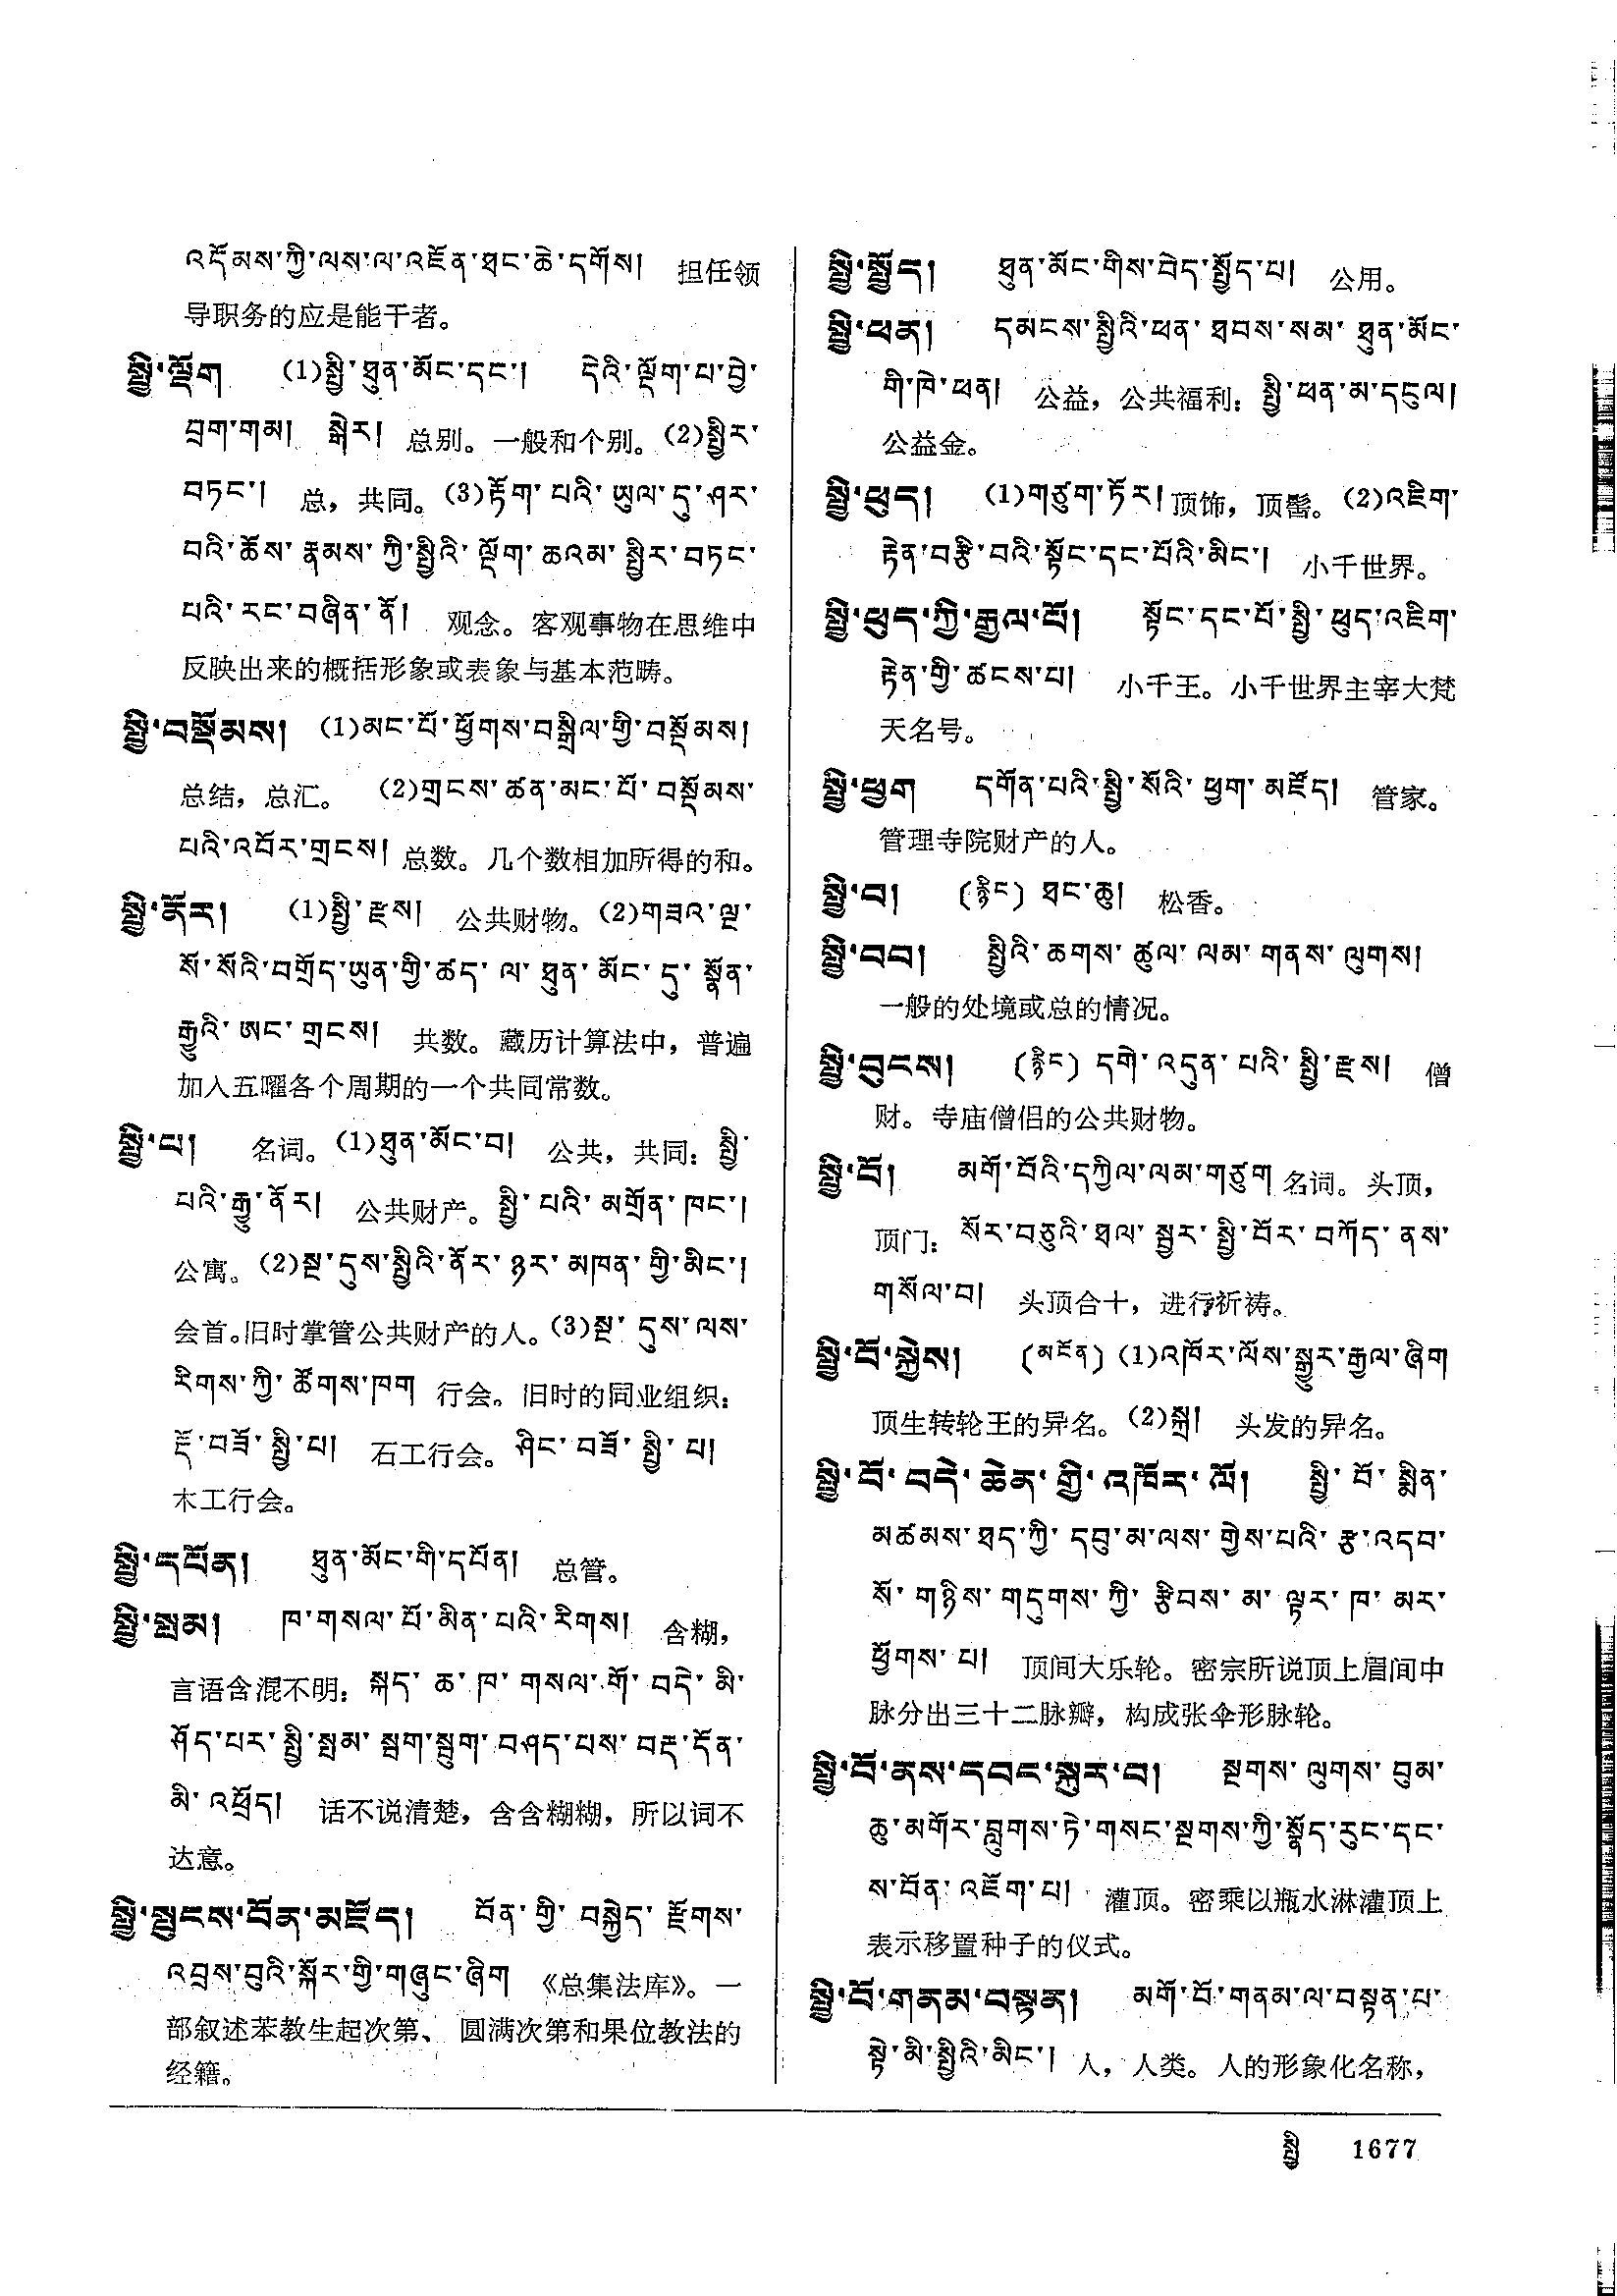 འདོམས་ཀྱི་ལས་ལ་འཇོན་ཐང་ཆེ་དགོས། 担任领
导职务的应是能干者。
སྤྱི་ལྡོག (1)སྤྱི་ཐུན་མོང་དང་། དེའི་ལྡོག་པ་བྱེ་
བྲག་གམ། སྒེར། 总别。一般和个别。(2)སྤྱིར་
བཏང་། 总，共同。(3)རྟོག་པའི་ཡུལ་དུ་ཤར་
བའི་ཆོས་རྣམས་ཀྱི་སྤྱིའི་ལྡོག་ཆའམ་སྤྱིར་བཏང་
པའི་རང་བཞིན་ནོ། 观念。客观事物在思维中
反映出来的概括形象或表象与基本范畴。
སྤྱི་བསྡོམས། (1)མང་པོ་ཕྱོགས་བསྒྲིལ་གྱི་བསྡོམས།
总结，总汇。 (2)གྲངས་ཚན་མང་པོ་བསྡོམས་
པའི་འབོར་གྲངས། 总数。几个数相加所得的和。
སྤྱི་ནོར། (1)སྤྱི་རྫས། 公共财物。(2)གཟའ་ལྔ་
སོ་སོའི་བགྲོད་ཡུན་གྱི་ཚད་ལ་ཐུན་མོང་དུ་སྣོན་
རྒྱུའི་ཨང་གྲངས། 共数。藏历计算法中，普遍
加入五曜各个周期的一个共同常数。
སྤྱི་པ། 名词。(1)ཐུན་མོང་བ། 公共，共同：སྤྱི་
པའི་རྒྱུ་ནོར། 公共财产。སྤྱི་པའི་མགྲོན་ཁང་།
公寓。(2)སྔ་དུས་སྤྱིའི་ནོར་ཉར་མཁན་གྱི་མིང་།
会首。旧时掌管公共财产的人。(3)སྔ་དུས་ལས་
རིགས་ཀྱི་ཚོགས་ཁག 行会。旧时的同业组织：
རྡོ་བཟོ་སྤྱི་པ། 石工行会。ཤིང་བཟོ་སྤྱི་པ།
木工行会。
སྤྱི་དཔོན། ཐུན་མོང་གི་དཔོན། 总管。
སྤྱི་སྲམ། ཁ་གསལ་པོ་མིན་པའི་རིགས། 含糊，
言语含混不明：སྐད་ཆ་ཁ་གསལ་གོ་བདེ་མི་
ཤོད་པར་སྤྱི་སྲམ་སྦག་སྦུག་བཤད་པས་བརྡ་དོན་
མི་འཕྲོད། 话不说清楚，含含糊糊，所以词不
达意。
སྤྱི་སྤུངས་བོན་མཛོད། བོན་གྱི་བསྐྱེད་རྫོགས་
འབྲས་བུའི་སྐོར་གྱི་གཞུང་ཞིག 《总集法库》。一
部叙述苯教生起次第、 圆满次第和果位教法的
经籍。
སྤྱི་སྤྱོད། ཐུན་མོང་གིས་བེད་སྤྱོད་པ། 公用。
སྤྱི་ཕན། དམངས་སྤྱིའི་ཕན་ཐབས་སམ་ཐུན་མོང་
གི་ཁེ་ཕན། 公益，公共福利：སྤྱི་ཕན་མ་དངུལ།
公益金。
སྤྱི་ཕུད། (1)གཙུག་ཏོར།顶饰，顶髻。(2)འཇིག་
རྟེན་བརྩི་བའི་སྟོང་དང་པོའི་མིང་། 小千世界。
སྤྱི་ཕུད་ཀྱི་རྒྱལ་པོ། སྟོང་དང་པོ་སྤྱི་ཕུད་འཇིག་
རྟེན་གྱི་ཚངས་པ། 小千王。小千世界主宰大梵
天名号。
སྤྱི་ཕྱག དགོན་པའི་སྤྱི་སོའི་ཕྱག་མཛོད། 管家。
管理寺院财产的人。
སྤྱི་བ། (རྙིང) ཐང་ཆུ། 松香。
སྤྱི་བབ། སྤྱིའི་ཆགས་ཚུལ་ལམ་གནས་ལུགས།
一般的处境或总的情况。
སྤྱི་བུངས། (རྙིང) དགེ་འདུན་པའི་སྤྱི་རྫས། 僧
财。寺庙僧侣的公共财物。
སྤྱི་བོ། མགོ་བོའི་དཀྱིལ་ལམ་གཙུག 名词。头顶，
顶门：སོར་བཅུའི་ཐལ་སྦྱར་སྤྱི་བོར་བཀོད་ནས་
གསོལ་བ། 头顶合十，进行祈祷。
སྤྱི་བོ་སྐྱེས། (མངོན) (1)འཁོར་ལོས་སྒྱུར་རྒྱལ་ཞིག
顶生转轮王的异名。(2)སྐྲ། 头发的异名。
སྤྱི་བོ་བདེ་ཆེན་གྱི་འཁོར་ལོ། སྤྱི་བོ་སྨིན་
མཚམས་ཐད་ཀྱི་དབུ་མ་ལས་གྱེས་པའི་རྩ་འདབ་
སོ་གཉིས་གདུགས་ཀྱི་རྩིབས་མ་ལྟར་ཁ་མར་
ཕྱོགས་པ། 顶间大乐轮。密宗所说顶上眉间中
脉分出三十二脉瓣，构成张伞形脉轮。
སྤྱི་བོ་ནས་དབང་སྐུར་བ། སྔགས་ལུགས་བུམ་
ཆུ་མགོར་བླུགས་ཏེ་གསང་སྔགས་ཀྱི་སྣོད་རུང་དང་
ས་བོན་འཇོག་པ། 灌顶。密乘以瓶水淋灌顶上
表示移置种子的仪式。
སྤྱི་བོ་གནམ་བསྟན། མགོ་བོ་གནམ་ལ་བསྟན་པ་
སྟེ་མི་སྤྱིའི་མིང་། 人，人类。人的形象化名称，
སྤྱི 1677